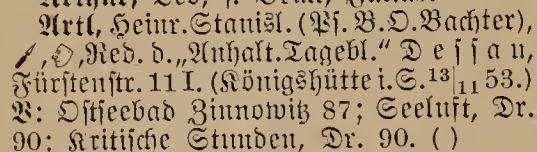 Artl, Heinr. Stanisl. (Ps. B. O. Bachter),
Red. d. „Anhalt. Tagebl.“ Dessau,
Fürstenstr. 11 I. (Königshütte i. S. 13|11 53.)
V: Ostseebad Zinnowitz 87; Seeluft, Dr.
90; Kritische Stunden, Dr. 90. ( )